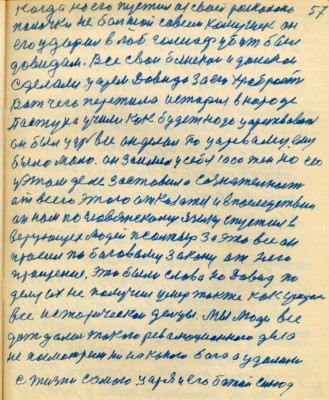 57
когда на его пустил из своей
палочки не большой совсем камушек он
его ударил в лоб голиаф убит был
довидам. Все свои близкой и далокой
сделали царем Довида за его храбрость
Вот чего перетила история в народе
Пастуха учили как будет надо царствовать
он был царь все он делал по царскому, ему
было мало. он заимел у себя 1000 жен но его
и этом деле заставила сознательност
от всего этого отказатся и впоследствии
он нам по словянскому языку спустил в
верующих людей псолтырь За это все он
просил по баговому закону от него
прощение. Это были слова но Давид по
делу их не получил умер также как
все исторические денцы. Мы люди все
дождалис такого революционного дела
не посмотрели ни на какого бога а удалили
с жизни самого царя и его божий синод